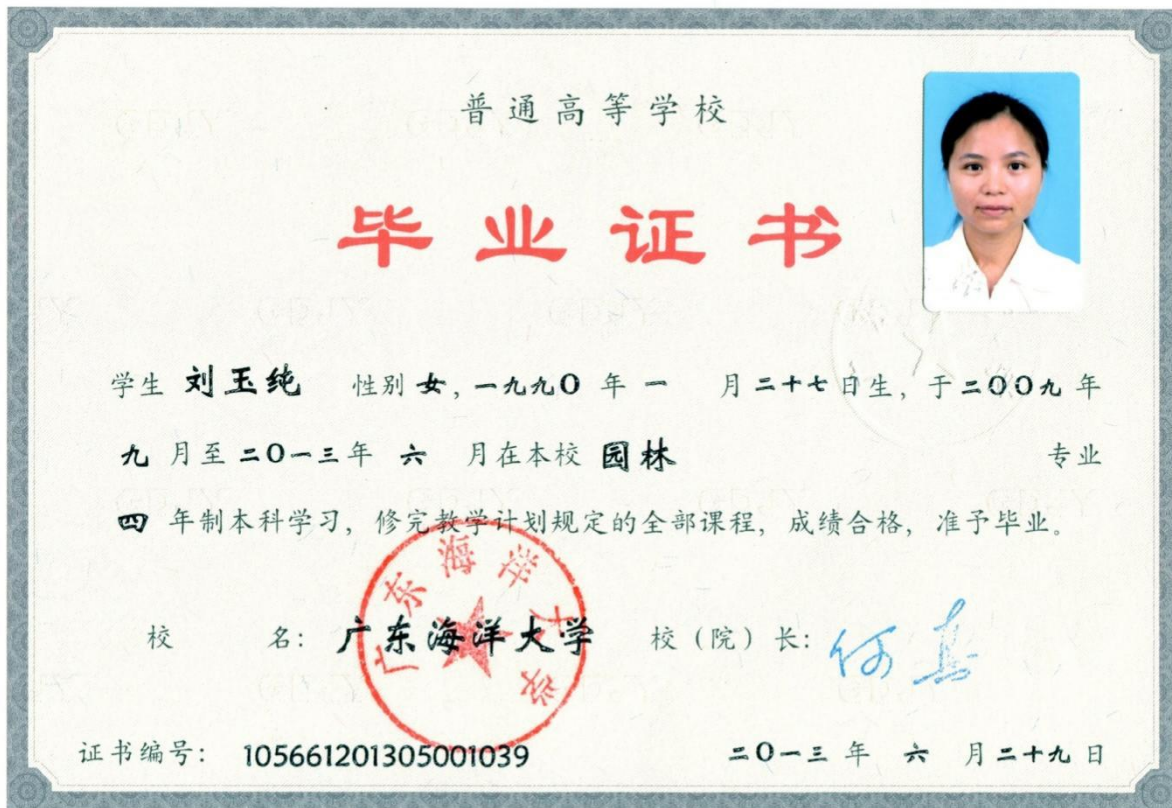 普通高等学校
毕业证书
学生 刘玉纯 性别 女，一九九〇 年 一 月 二十七 日生，于 二〇〇九 年
九 月至 二〇一三 年 六 月在本校 园林 专业
四 年制本科学习，修完教学计划规定的全部课程，成绩合格，准予毕业。
广东海洋大学
校 名： 广东海洋大学 校（院）长： 何真
证书编号： 105661201305001039 二〇一三 年 六 月 二十九 日